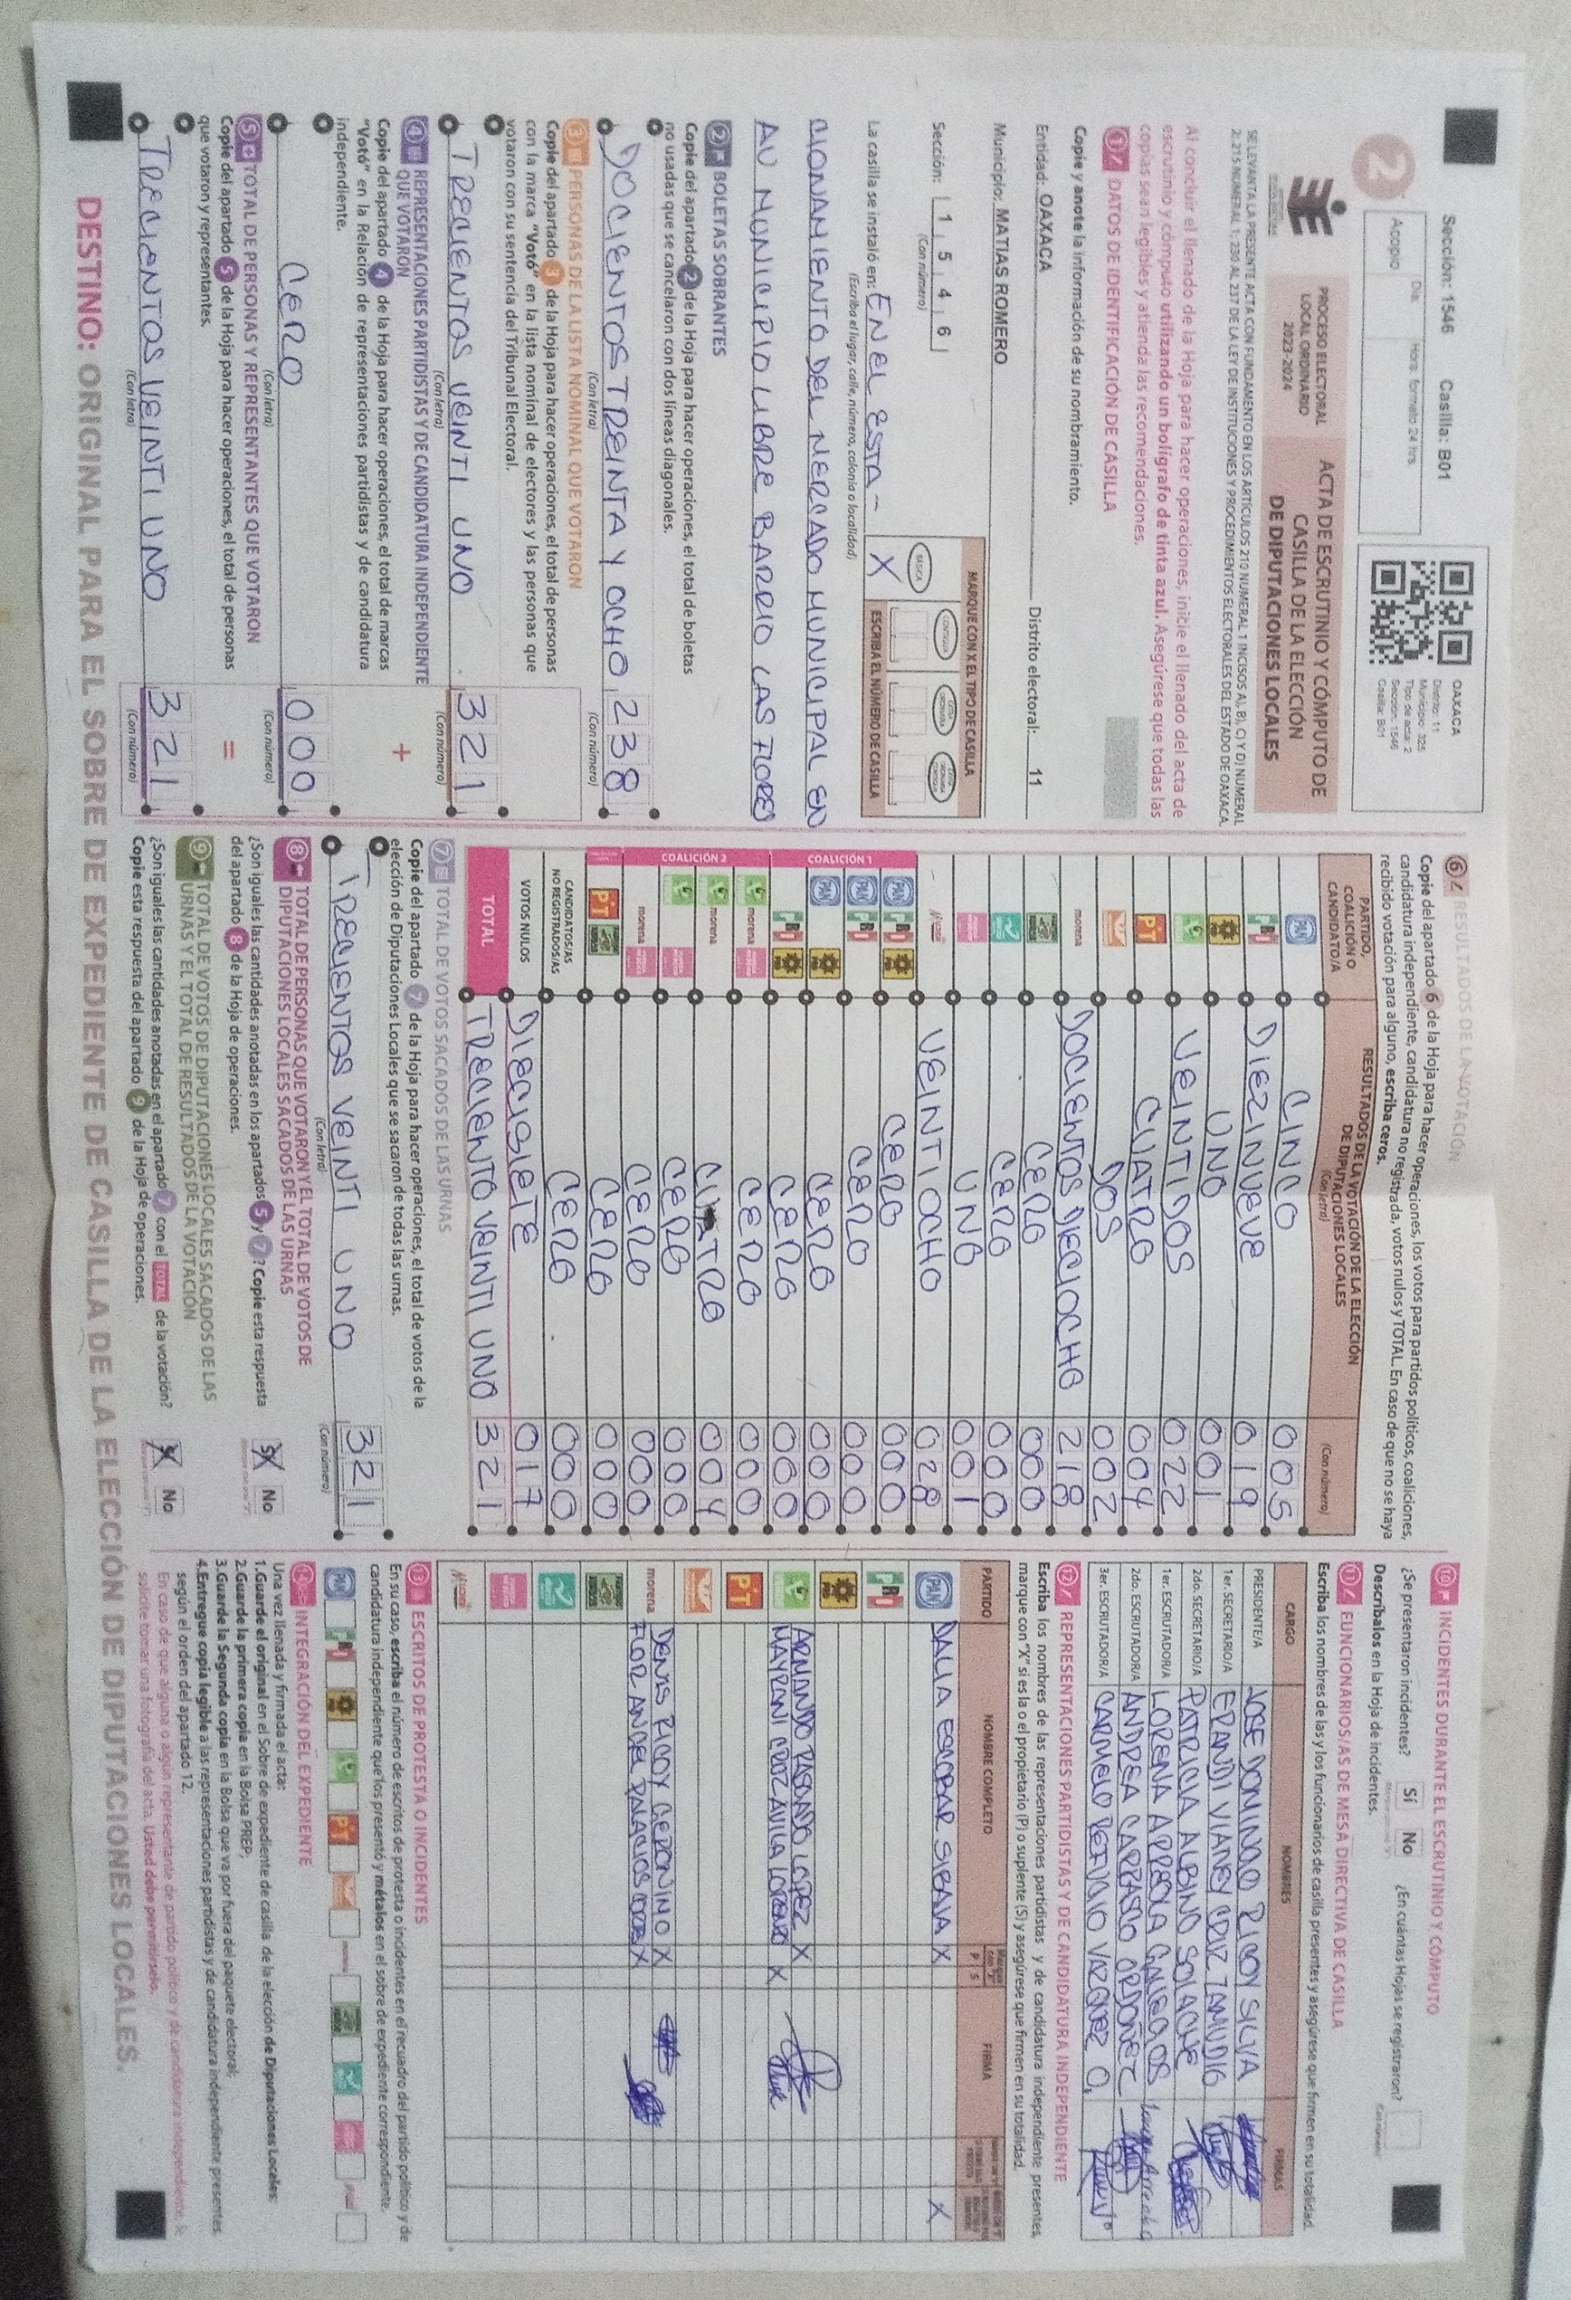 Sección: 1546 Casilla: B01
Día: Hora: formato 24 hrs.
Acopio
2
OAXACA
Distrito: 11
Municipio: 325
Tipo de acta: 2
Sección: 1546
Casilla: B01
PROCESO ELECTORAL
LOCAL ORDINARIO
2023-2024
ACTA DE ESCRUTINIO Y CÓMPUTO DE
CASILLA DE LA ELECCIÓN
DE DIPUTACIONES LOCALES
SE LEVANTA LA PRESENTE ACTA CON FUNDAMENTO EN LOS ARTÍCULOS 210 NUMERAL 1 INCISOS A), B), C) Y D) NUMERAL
2; 215 NUMERAL 1; 230 AL 237 DE LA LEY DE INSTITUCIONES Y PROCEDIMIENTOS ELECTORALES DEL ESTADO DE OAXACA.
Al concluir el llenado de la Hoja para hacer operaciones, inicie el llenado del acta de
escrutinio y cómputo utilizando un bolígrafo de tinta azul. Asegúrese que todas las
copias sean legibles y atienda las recomendaciones.
1 DATOS DE IDENTIFICACIÓN DE CASILLA
Copie y anote la información de su nombramiento.
Entidad: OAXACA Distrito electoral: 11
Municipio: MATIAS ROMERO
Sección: 1 5 4 6
(Con número)
MARQUE CON X EL TIPO DE CASILLA
BÁSICA CONTIGUA
X
ESCRIBA EL NÚMERO DE CASILLA
La casilla se instaló en: EN EL ESTA-
(Escriba el lugar, calle, número, colonia o localidad)
CIONAMIENTO DEL MERCADO MUNICIPAL EN
AV MUNICIPIO LIBRE BARRIO LAS FLORES
2 BOLETAS SOBRANTES
Copie del apartado 2 de la Hoja para hacer operaciones, el total de boletas
no usadas que se cancelaron con dos líneas diagonales.
DOCIENTOS TREINTA Y OCHO 238
(Con letra) (Con número)
3 PERSONAS DE LA LISTA NOMINAL QUE VOTARON
Copie del apartado 3 de la Hoja para hacer operaciones, el total de personas
con la marca "Votó" en la lista nominal de electores y las personas que
votaron con su sentencia del Tribunal Electoral.
TRECIENTOS VEINTI UNO 321
(Con letra) (Con número)
4 REPRESENTACIONES PARTIDISTAS Y DE CANDIDATURA INDEPENDIENTE
QUE VOTARON
Copie del apartado 4 de la Hoja para hacer operaciones, el total de marcas
"Votó" en la Relación de representaciones partidistas y de candidatura
independiente.
+
CERO 000
(Con letra) (Con número)
5 TOTAL DE PERSONAS Y REPRESENTANTES QUE VOTARON
Copie del apartado 5 de la Hoja para hacer operaciones, el total de personas
que votaron y representantes.
=
TRECIENTOS VEINTI UNO 321
(Con letra) (Con número)
6 RESULTADOS DE LA VOTACIÓN
Copie del apartado 6 de la Hoja para hacer operaciones, los votos para partidos políticos, coaliciones,
candidatura independiente, candidatura no registrada, votos nulos y TOTAL. En caso de que no se haya
recibido votación para alguno, escriba ceros.
PARTIDO,
COALICIÓN O
CANDIDATO/A
RESULTADOS DE LA VOTACIÓN DE LA ELECCIÓN
DE DIPUTACIONES LOCALES
(Con letra) (Con número)
PAN CINCO 005
PRI DIEZINUEVE 019
PRD UNO 001
VEINTIDOS 022
PT CUATRO 004
DOS 002
morena DOCIENTOS DIECIOCHO 218
CERO 000
CERO 000
UNO 001
VEINTIOCHO 028
COALICIÓN 1
PAN PRI PRD CERO 000
PAN PRI CERO 000
PAN PRD CERO 000
PRI PRD CERO 000
COALICIÓN 2
morena CERO 000
morena CUATRO 004
CERO 000
morena CERO 000
PT CERO 000
CANDIDATOS/AS
NO REGISTRADOS/AS CERO 000
VOTOS NULOS DIECISIETE 017
TOTAL TRECIENTO VEINTI UNO 321
7 TOTAL DE VOTOS SACADOS DE LAS URNAS
Copie del apartado 7 de la Hoja para hacer operaciones, el total de votos de la
elección de Diputaciones Locales que se sacaron de todas las urnas.
TRECIENTOS VEINTI UNO 321
(Con letra) (Con número)
8 TOTAL DE PERSONAS QUE VOTARON Y EL TOTAL DE VOTOS DE
DIPUTACIONES LOCALES SACADOS DE LAS URNAS
¿Son iguales las cantidades anotadas en los apartados 5 y 7? Copie esta respuesta
del apartado 8 de la Hoja de operaciones.
Sí No
9 TOTAL DE VOTOS DE DIPUTACIONES LOCALES SACADOS DE LAS
URNAS Y EL TOTAL DE RESULTADOS DE LA VOTACIÓN
¿Son iguales las cantidades anotadas en el apartado 7 con el TOTAL de la votación?
Copie esta respuesta del apartado 9 de la Hoja de operaciones.
Sí No
10 INCIDENTES DURANTE EL ESCRUTINIO Y CÓMPUTO
¿Se presentaron incidentes? Sí No ¿En cuántas Hojas se registraron?
Descríbalos en la Hoja de incidentes.
11 FUNCIONARIOS/AS DE MESA DIRECTIVA DE CASILLA
Escriba los nombres de las y los funcionarios de casilla presentes y asegúrese que firmen en su totalidad.
CARGO NOMBRES FIRMAS
PRESIDENTE/A JOSE DOMINGO RICOY SILVA
1er. SECRETARIO/A ERANDI VIANEY CRUZ ZAMUDIO
2do. SECRETARIO/A PATRICIA ALBINO SOLACHE
1er. ESCRUTADOR/A LORENA ARREOLA GALLEGOS
2do. ESCRUTADOR/A ANDREA CARRASCO ORDOÑEZ
3er. ESCRUTADOR/A CARMELO REFUGIO VAZQUEZ O.
12 REPRESENTACIONES PARTIDISTAS Y DE CANDIDATURA INDEPENDIENTE
Escriba los nombres de las representaciones partidistas y de candidatura independiente presentes,
marque con "X" si es la o el propietario (P) o suplente (S) y asegúrese que firmen en su totalidad.
PARTIDO NOMBRE COMPLETO P S FIRMA
PAN DALIA ESCOBAR SIBAJA X X
PRI
PRD
ARMANDO ROSADO LOPEZ X
MAYRANI CRUZ AVILA LORENZO X
PT
morena DENIS RICOY GERONIMO X
FLOR ANGEL PALACIOS X
13 ESCRITOS DE PROTESTA O INCIDENTES
En su caso, escriba el número de escritos de protesta o incidentes en el recuadro del partido político y de
candidatura independiente que los presentó y métalos en el sobre de expediente correspondiente.
PAN PRI PRD PT
14 INTEGRACIÓN DEL EXPEDIENTE
Una vez llenada y firmada el acta:
1.Guarde el original en el Sobre de expediente de casilla de la elección de Diputaciones Locales;
2.Guarde la primera copia en la Bolsa PREP;
3.Guarde la Segunda copia en la Bolsa que va por fuera del paquete electoral;
4.Entregue copia legible a las representaciones partidistas y de candidatura independiente presentes
según el orden del apartado 12.
En caso de que alguna o algún representante de partido político y de candidatura independiente, le
solicite tomar una fotografía del acta. Usted debe permitírselo.
DESTINO: ORIGINAL PARA EL SOBRE DE EXPEDIENTE DE CASILLA DE LA ELECCIÓN DE DIPUTACIONES LOCALES.